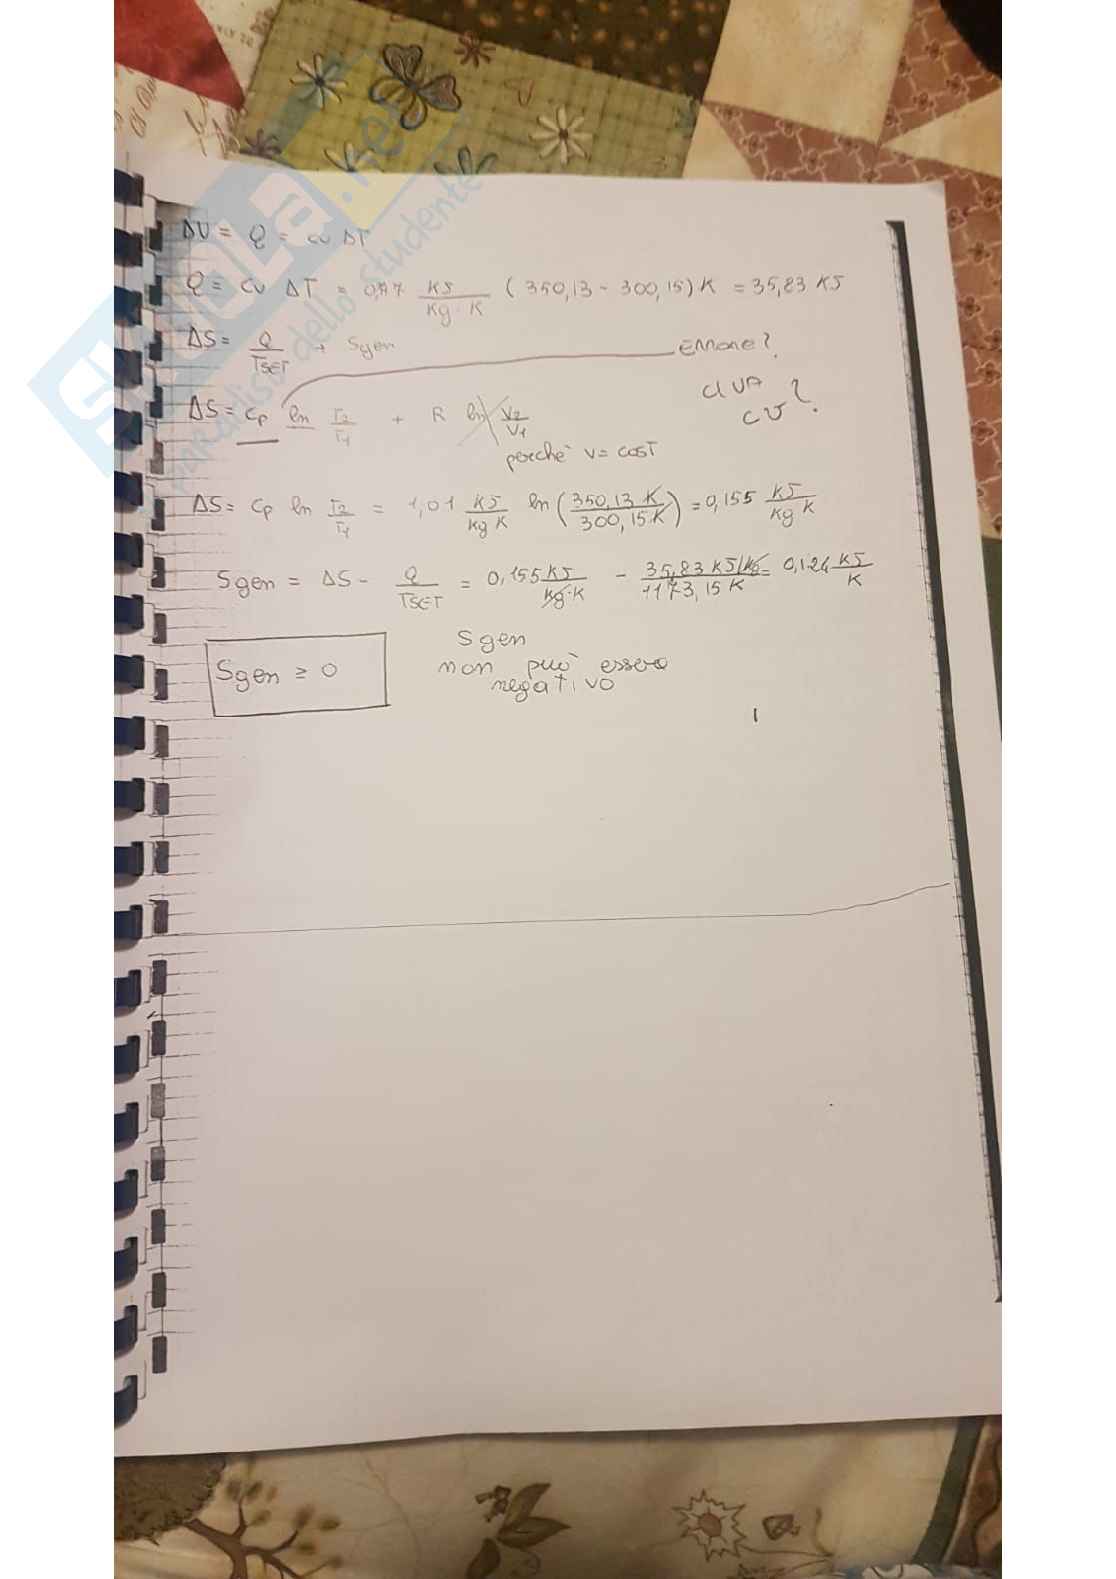 ΔU = Q = cv ΔT
Q = cv ΔT = 0,77 KJ/Kg·K (350,13 - 300,15) K = 35,83 KJ
ΔS = Q/TSET + Sgen
Errore?
ΔS = cp ln T2/T1 + R ln V2/V1
CI VA CV?
perchè V = COST
ΔS = cp ln T2/T1 = 1,01 KJ/Kg K ln (350,13 K/300,15 K) = 0,155 KJ/Kg K
Sgen = ΔS - Q/TSET = 0,155 KJ/Kg·K - 35,83 KJ/Kg/1173,15 K = 0,124 KJ/K
Sgen ≥ 0
Sgen
non può essere
negativo